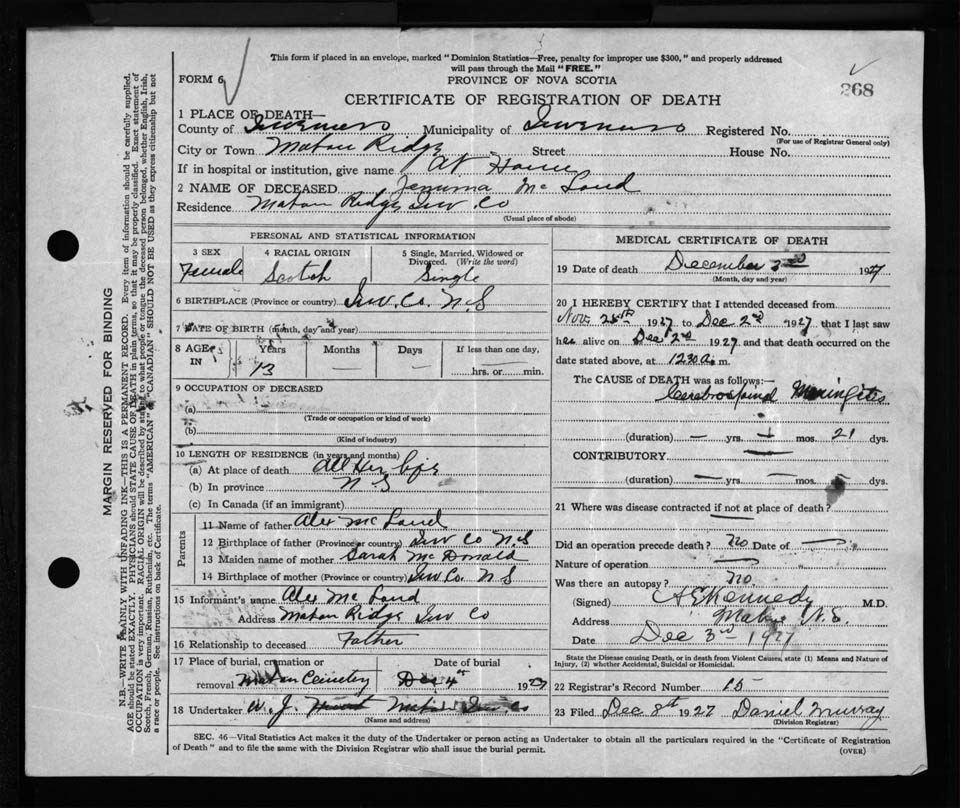 This form if placed in an envelope, marked "Dominion Statistics—Free, penalty for improper use $300," and properly addressed
will pass through the Mail "FREE."
FORM 6
PROVINCE OF NOVA SCOTIA
268
CERTIFICATE OF REGISTRATION OF DEATH
1 PLACE OF DEATH—
County of Inverness Municipality of Inverness Registered No.
(For use of Registrar General only)
City or Town Mabou Ridge Street House No.
If in hospital or institution, give name At Home
2 NAME OF DECEASED Jemima McLoud
Residence Mabou Ridge Inv. Co
(Usual place of abode)
PERSONAL AND STATISTICAL INFORMATION
3 SEX
4 RACIAL ORIGIN
5 Single, Married, Widowed or
Divorced. (Write the word)
Female Scotch Single
6 BIRTHPLACE (Province or country) Inv. Co. N.S
7 DATE OF BIRTH (month, day and year)
8 AGE IN
Years Months Days If less than one day,
13 — — hrs. or min.
9 OCCUPATION OF DECEASED
(a)
(Trade or occupation or kind of work)
(b)
(Kind of industry)
10 LENGTH OF RESIDENCE (in years and months)
(a) At place of death All Her life
(b) In province N S
(c) In Canada (if an immigrant)
Parents
11 Name of father Alex McLoud
12 Birthplace of father (Province or country) Inv Co N.S
13 Maiden name of mother Sarah McDonald
14 Birthplace of mother (Province or country) Inv Co. N S
15 Informant's name Alex McLoud
Address Mabou Ridge Inv Co
16 Relationship to deceased Father
17 Place of burial, cremation or Date of burial
removal Mabou Cemetery Dec 4th 1927
18 Undertaker W. J. Mabou Inv. Co
(Name and address)
MEDICAL CERTIFICATE OF DEATH
19 Date of death December 3rd 1927
(Month, day and year)
20 I HEREBY CERTIFY that I attended deceased from
Nov. 25th 1927 to Dec 2nd 1927 that I last saw
her alive on Dec 2nd 1927 and that death occurred on the
date stated above, at 12.30 a. m.
The CAUSE OF DEATH was as follows:—
Cerebrospinal Meningitis
(duration) — yrs. 1 mos. 21 dys.
CONTRIBUTORY
(duration) — yrs. — mos. dys.
21 Where was disease contracted if not at place of death?
Did an operation precede death? No Date of —
Nature of operation —
Was there an autopsy? No.
(Signed) Kennedy M.D.
Address Mabou N.S.
Date Dec 3rd 1927
State the Disease causing Death, or in death from Violent Causes, state (1) Means and Nature of
Injury, (2) whether Accidental, Suicidal or Homicidal.
22 Registrar's Record Number 15
23 Filed Dec 8th 1927 Daniel Murray
(Division Registrar)
SEC. 46—Vital Statistics Act makes it the duty of the Undertaker or person acting as Undertaker to obtain all the particulars required in the "Certificate of Registration
of Death" and to file the same with the Division Registrar who shall issue the burial permit.
(OVER)
MARGIN RESERVED FOR BINDING
N.B.—WRITE PLAINLY WITH UNFADING INK—THIS IS A PERMANENT RECORD. Every item of information should be carefully supplied.
AGE should be stated EXACTLY. PHYSICIANS should STATE CAUSE OF DEATH in plain terms, so that it may be properly classified. Exact statement of
OCCUPATION is very important. RACIAL ORIGIN will be described by stating to what people or tongue the deceased person belonged, whether English, Irish,
Scotch, French, German, Russian, Ruthenian, etc. The terms "AMERICAN" or "CANADIAN" SHOULD NOT BE USED as they express citizenship but not
a race or people. See instructions on back of Certificate.